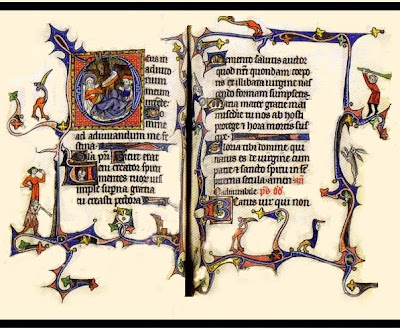 Deus in
adiuto
rium
meum
intede
Do
mine
ad adiuuandum me fe
stina
Gla pri Sicut erat
Ueni creator spiri
mentes tuor uisi
imple supna gratia
tu creasti pectora
Memento salutis auctor
quod nri quondam corpo
ris ex illibata uirgine nas
cendo formam sumpseris
Maria mater gratie mat
misedie tu nos ab hosti
protege z hora mortis susci
Gloria tibi domine qui
natus es de uirgine cum
patre z sancto spiritu in se
piterna secula amen
Beatus uir qui non